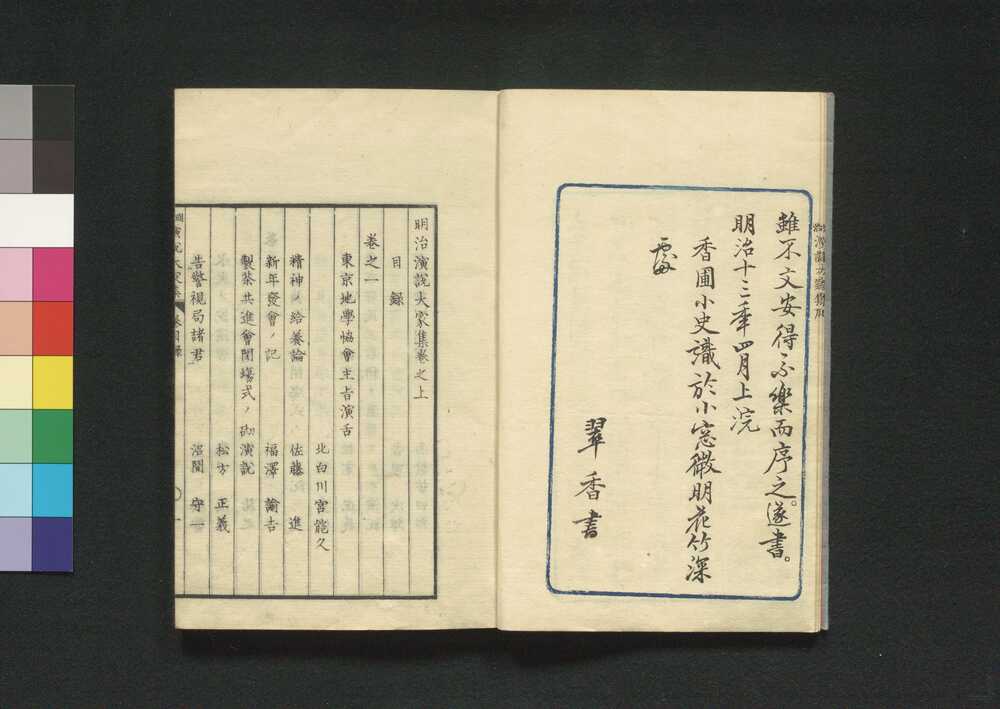 雖不文安得不樂而序之。遂書。
明治十三年四月上浣
香圃小史識於小窓微明花竹深
處
翠香書
明治演説大家集卷之上
目録
卷之一
東京地學協會主旨演舌
北白川宮能久
精神ノ給養論
佐藤 進
新年發會ノ記
福澤 諭吉
製茶共進會開塲式ノ御演説
松方 正義
告警視局諸君
沼間 守一